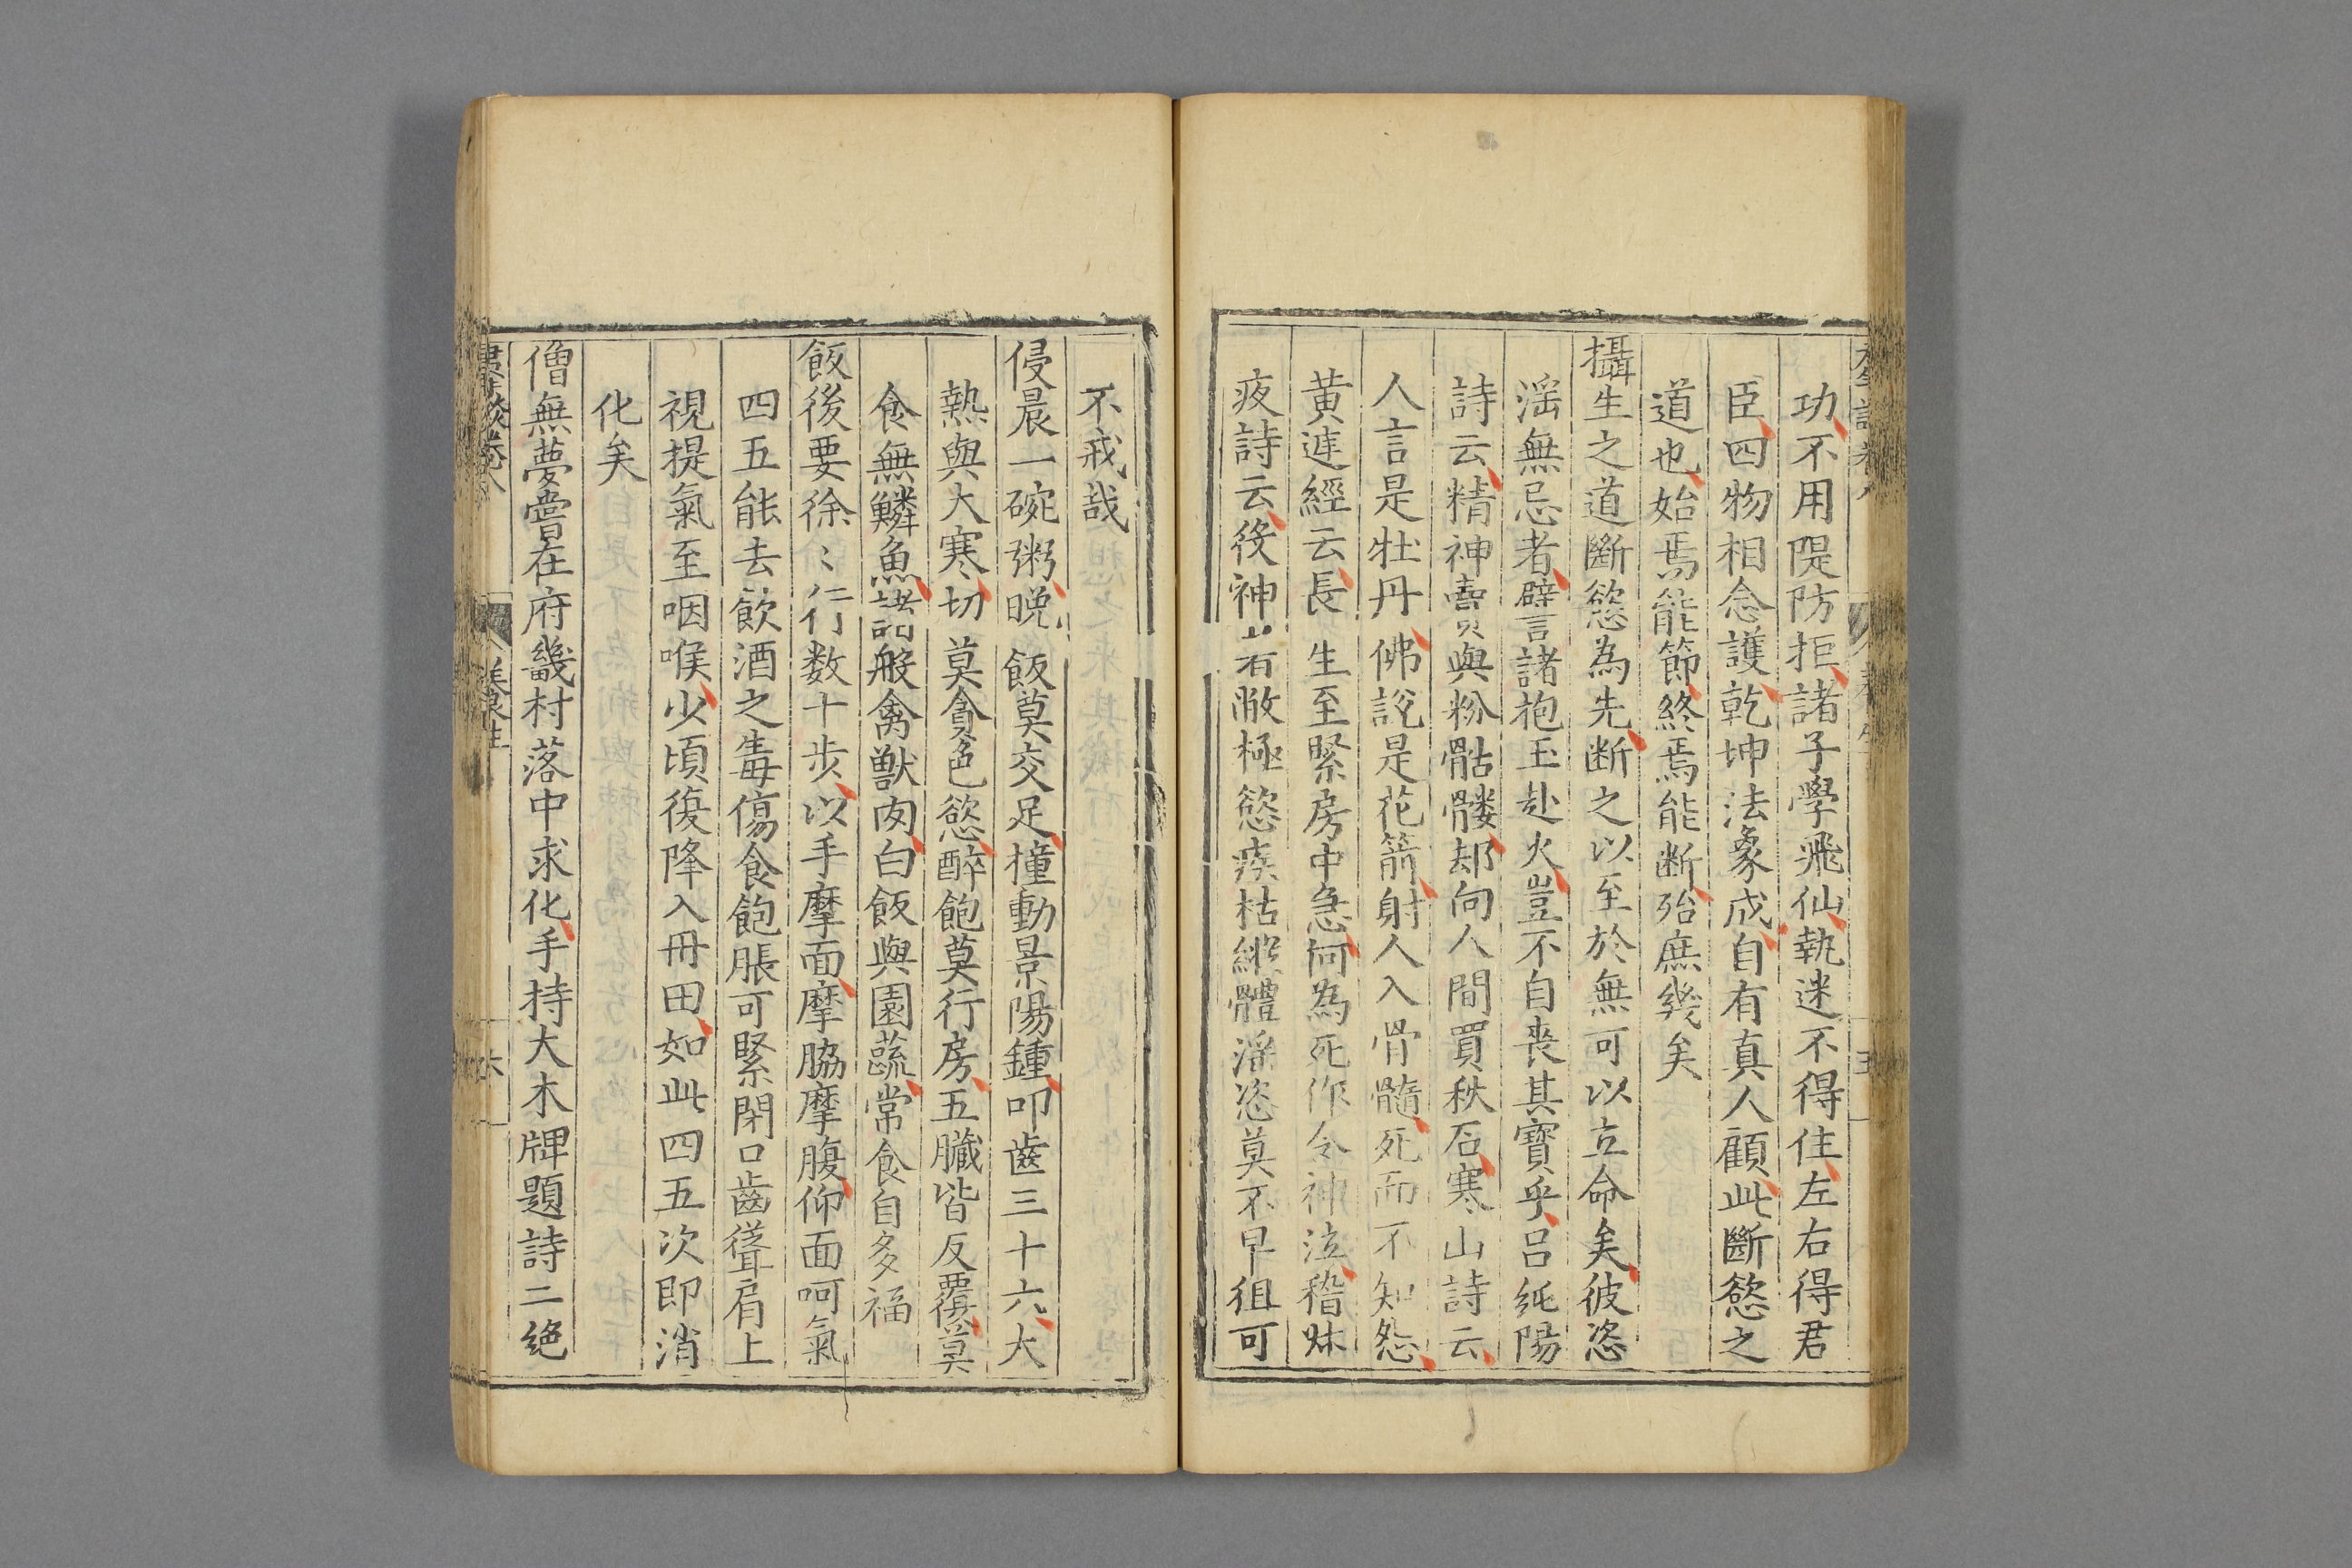 功不用隄防拒諸子學飛仙執迷不得住左右得君
臣四物相念護乾坤法象成自有真人顧此斷慾之
道也始焉能節終焉能断殆庶幾矣
攝生之道斷慾為先断之以至於無可以立命矣彼恣
淫無忌者譬諸抱玉赴火豈不自喪其寶乎呂純陽
詩云精神賣與粉骷髏却向人間買秋石寒山詩云
人言是牡丹佛説是花箭射人入骨髓死而不知怨
黃連經云長生至緊房中急何為死作令神泣稽
夜詩云役神者敝極慾疾枯縱體淫恣莫不早徂可
不戒哉
侵晨一碗粥晚飯莫交足撞動景陽鍾叩齒三十六大
熱與大寒切莫貪色慾醉飽莫行房五臟皆反覆莫
食無鱗魚諸般禽獸肉白飯與園蔬常食自多福
飯後要徐〻行数十步以手摩面摩脇摩腹仰面呵氣
四五能去飲酒之毒傷食飽脹可緊閉口齒聳肩上
視提氣至咽喉少頃復降入丹田如此四五次即消
化矣
僧無夢嘗在府畿村落中求化手持大木牌題詩二絶
六